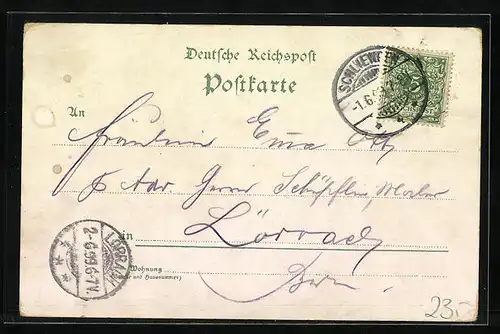 Deutsche Reichspost
Postkarte
SCHLIENGEN
-1.6.99
An
Fräulein Emma
p. Adr. Herrn Schöpflin
in Lörrach
LÖRRACH
2.6.99.6-7V.
Wohnung
und Hausnummer)
23.-